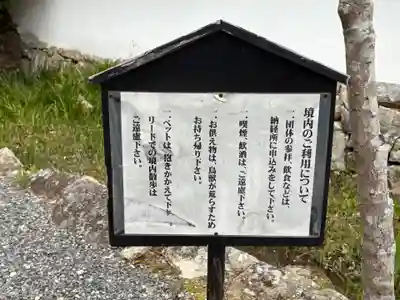 境内のご利用について
一.団体の参拝、飲食などは、
納経所に申込みをして下さい。
一.喫煙、飲酒は、ご遠慮下さい。
一.お供え物は、鳥獣が荒らすため
お持ち帰り下さい。
一.ペットは、抱きかかえて下さい。
リードでの境内散歩は
ご遠慮下さい。